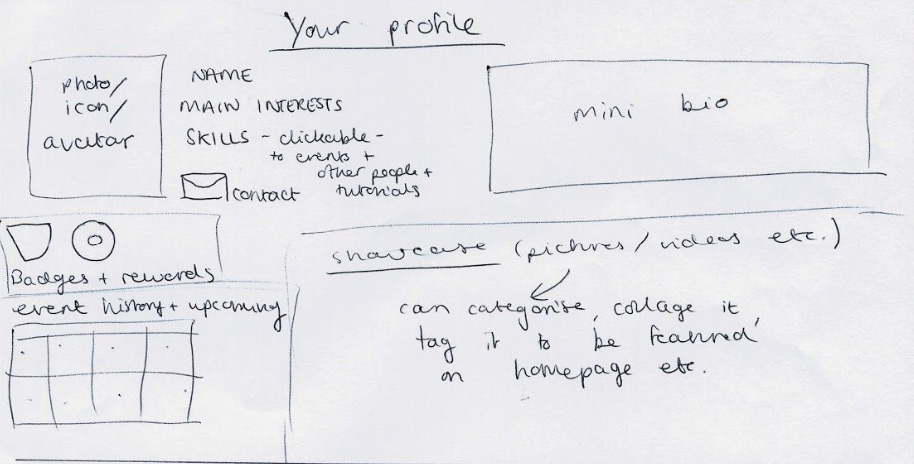 Your profile
photo/
icon/
avatar
NAME
MAIN INTERESTS
SKILLS - clickable -
to events +
other people +
tutorials
contact
mini bio
Badges + rewards
event history + upcoming
showcase (pictures / videos etc.)
can categorise, collage it
tag it to be featured
on homepage etc.